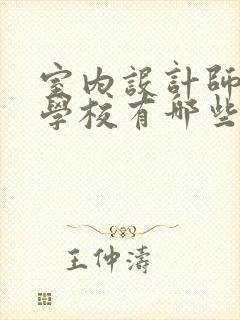 室內設計師
學校有哪些
王仲濤